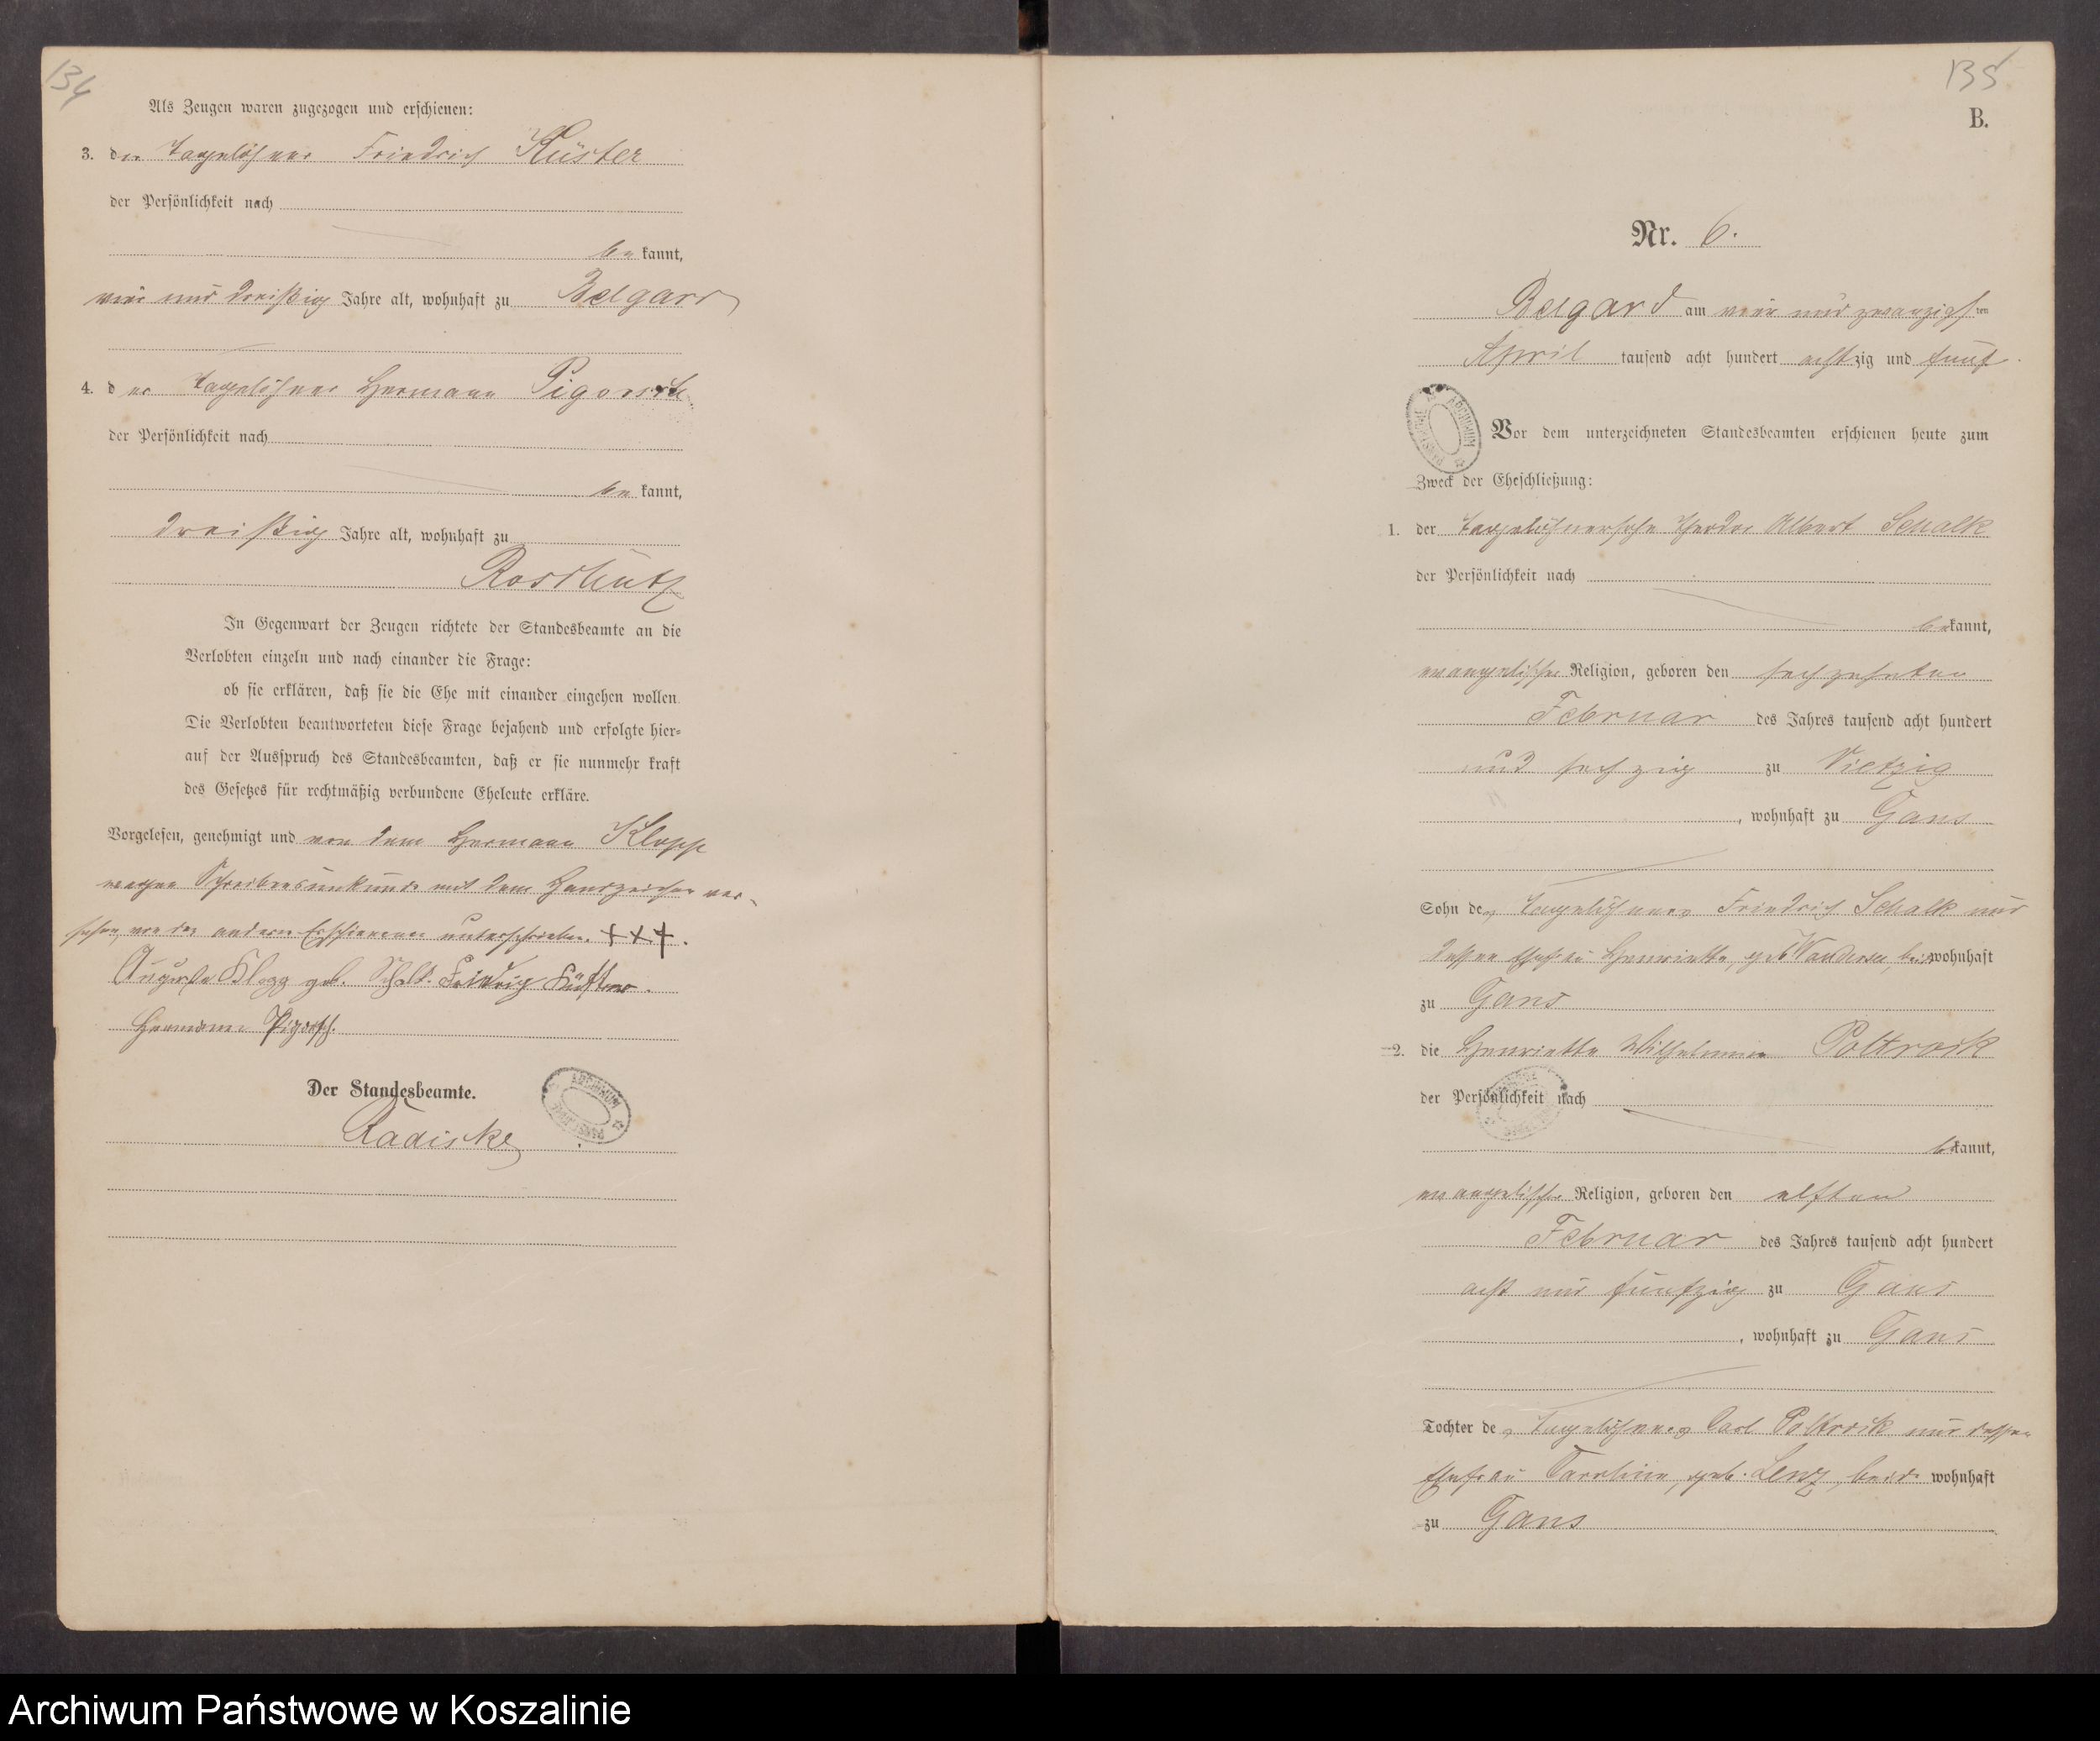 134
Als Zeugen waren zugezogen und erschienen:
3. der Tagelöhner Friedrich Küster
der Persönlichkeit nach
bekannt,
vier und dreißig Jahre alt, wohnhaft zu Belgard
4. der Tagelöhner Hermann Pigorsch
der Persönlichkeit nach
bekannt,
dreißig Jahre alt, wohnhaft zu
In Gegenwart der Zeugen richtete der Standesbeamte an die
Verlobten einzeln und nach einander die Frage:
ob sie erklären, daß sie die Ehe mit einander eingehen wollen.
Die Verlobten beantworteten diese Frage bejahend und erfolgte hier=
auf der Ausspruch des Standesbeamten, daß er sie nunmehr kraft
des Gesetzes für rechtmäßig verbundene Eheleute erkläre.
Vorgelesen, genehmigt und von dem Hermann Klopp
wegen Schreibensunkunde mit dem Handzeichen ver-
sehen, von den andern Erschienenen unterschrieben. +++.
Auguste Klopp geb. Friedrich Küster.
Hermann Pigorsch.
Der Standesbeamte.
Radiske
135
B.
Nr. 6.
Belgard am vier und zwanzigsten
April tausend acht hundert achtzig und fünf.
Vor dem unterzeichneten Standesbeamten erschienen heute zum
Zweck der Eheschließung:
1. der Albert Schalk
der Persönlichkeit nach
bekannt,
evangelischer Religion, geboren den sechzehnten
Februar des Jahres tausend acht hundert
und sechzig zu Vietzig
, wohnhaft zu Gans
Sohn des Tagelöhners Friedrich Schalk und
dessen Ehefrau Henriette, geb. wohnhaft
zu Gans
2. die Henriette Wilhelmine Poltrock
der Persönlichkeit nach
bekannt,
evangelischer Religion, geboren den elften
Februar des Jahres tausend acht hundert
acht und fünfzig zu Gans
, wohnhaft zu Gans
Tochter des Tagelöhners Carl Poltrock und dessen
Ehefrau Caroline, geb. Lenz, beide wohnhaft
zu Gans
Archiwum Państwowe w Koszalinie